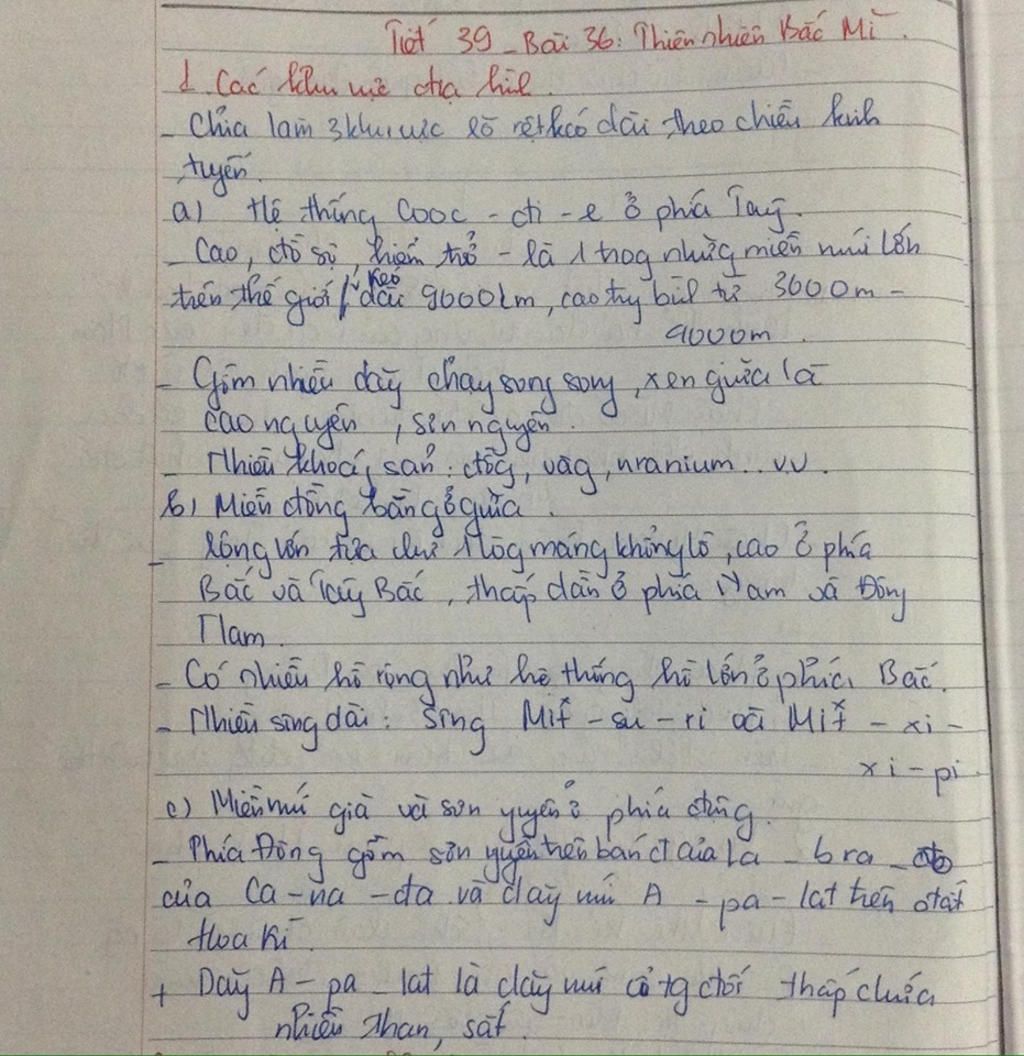 Tiết 39 - Bài 36: Thiên nhiên Bắc Mĩ.
1. Các khu vực địa hình.
- Chia làm 3 khu vực rõ rệt kéo dài theo chiều kinh
tuyến.
a) Hệ thống Cooc - đi - e ở phía Tây.
- Cao, đồ sộ, hiểm trở - là 1 trog những miền núi lớn
trên thế giới, kéo dài 9000km, cao tg bình từ 3000m -
4000m.
- Gồm nhiều dãy chạy song song, xen giữa là
cao nguyên, sơn nguyên.
- Nhiều khoág sản: đồg, vàg, uranium... v.v.
b) Miền đồng bằng ở giữa.
- Rộng lớn tựa như 1 lòg máng khổng lồ, cao ở phía
Bắc và Tây Bắc, thấp dần ở phía Nam và Đông
Nam.
- Có nhiều hồ rộng như hệ thống hồ lớn ở phía Bắc.
- Nhiều sông dài: Sông Mit - su - ri và Mit - xi -
xi - pi.
c) Miền núi già và sơn nguyên ở phía đông.
- Phía Đông gồm sơn nguyên trên bán đ của La - bra - đo
của Ca - na - đa và dãy núi A - pa - lat trên đất
Hoa Kì.
+ Dãy A - pa - lat là dãy núi cổ tg đối thấp chứa
nhiều than, sắt.